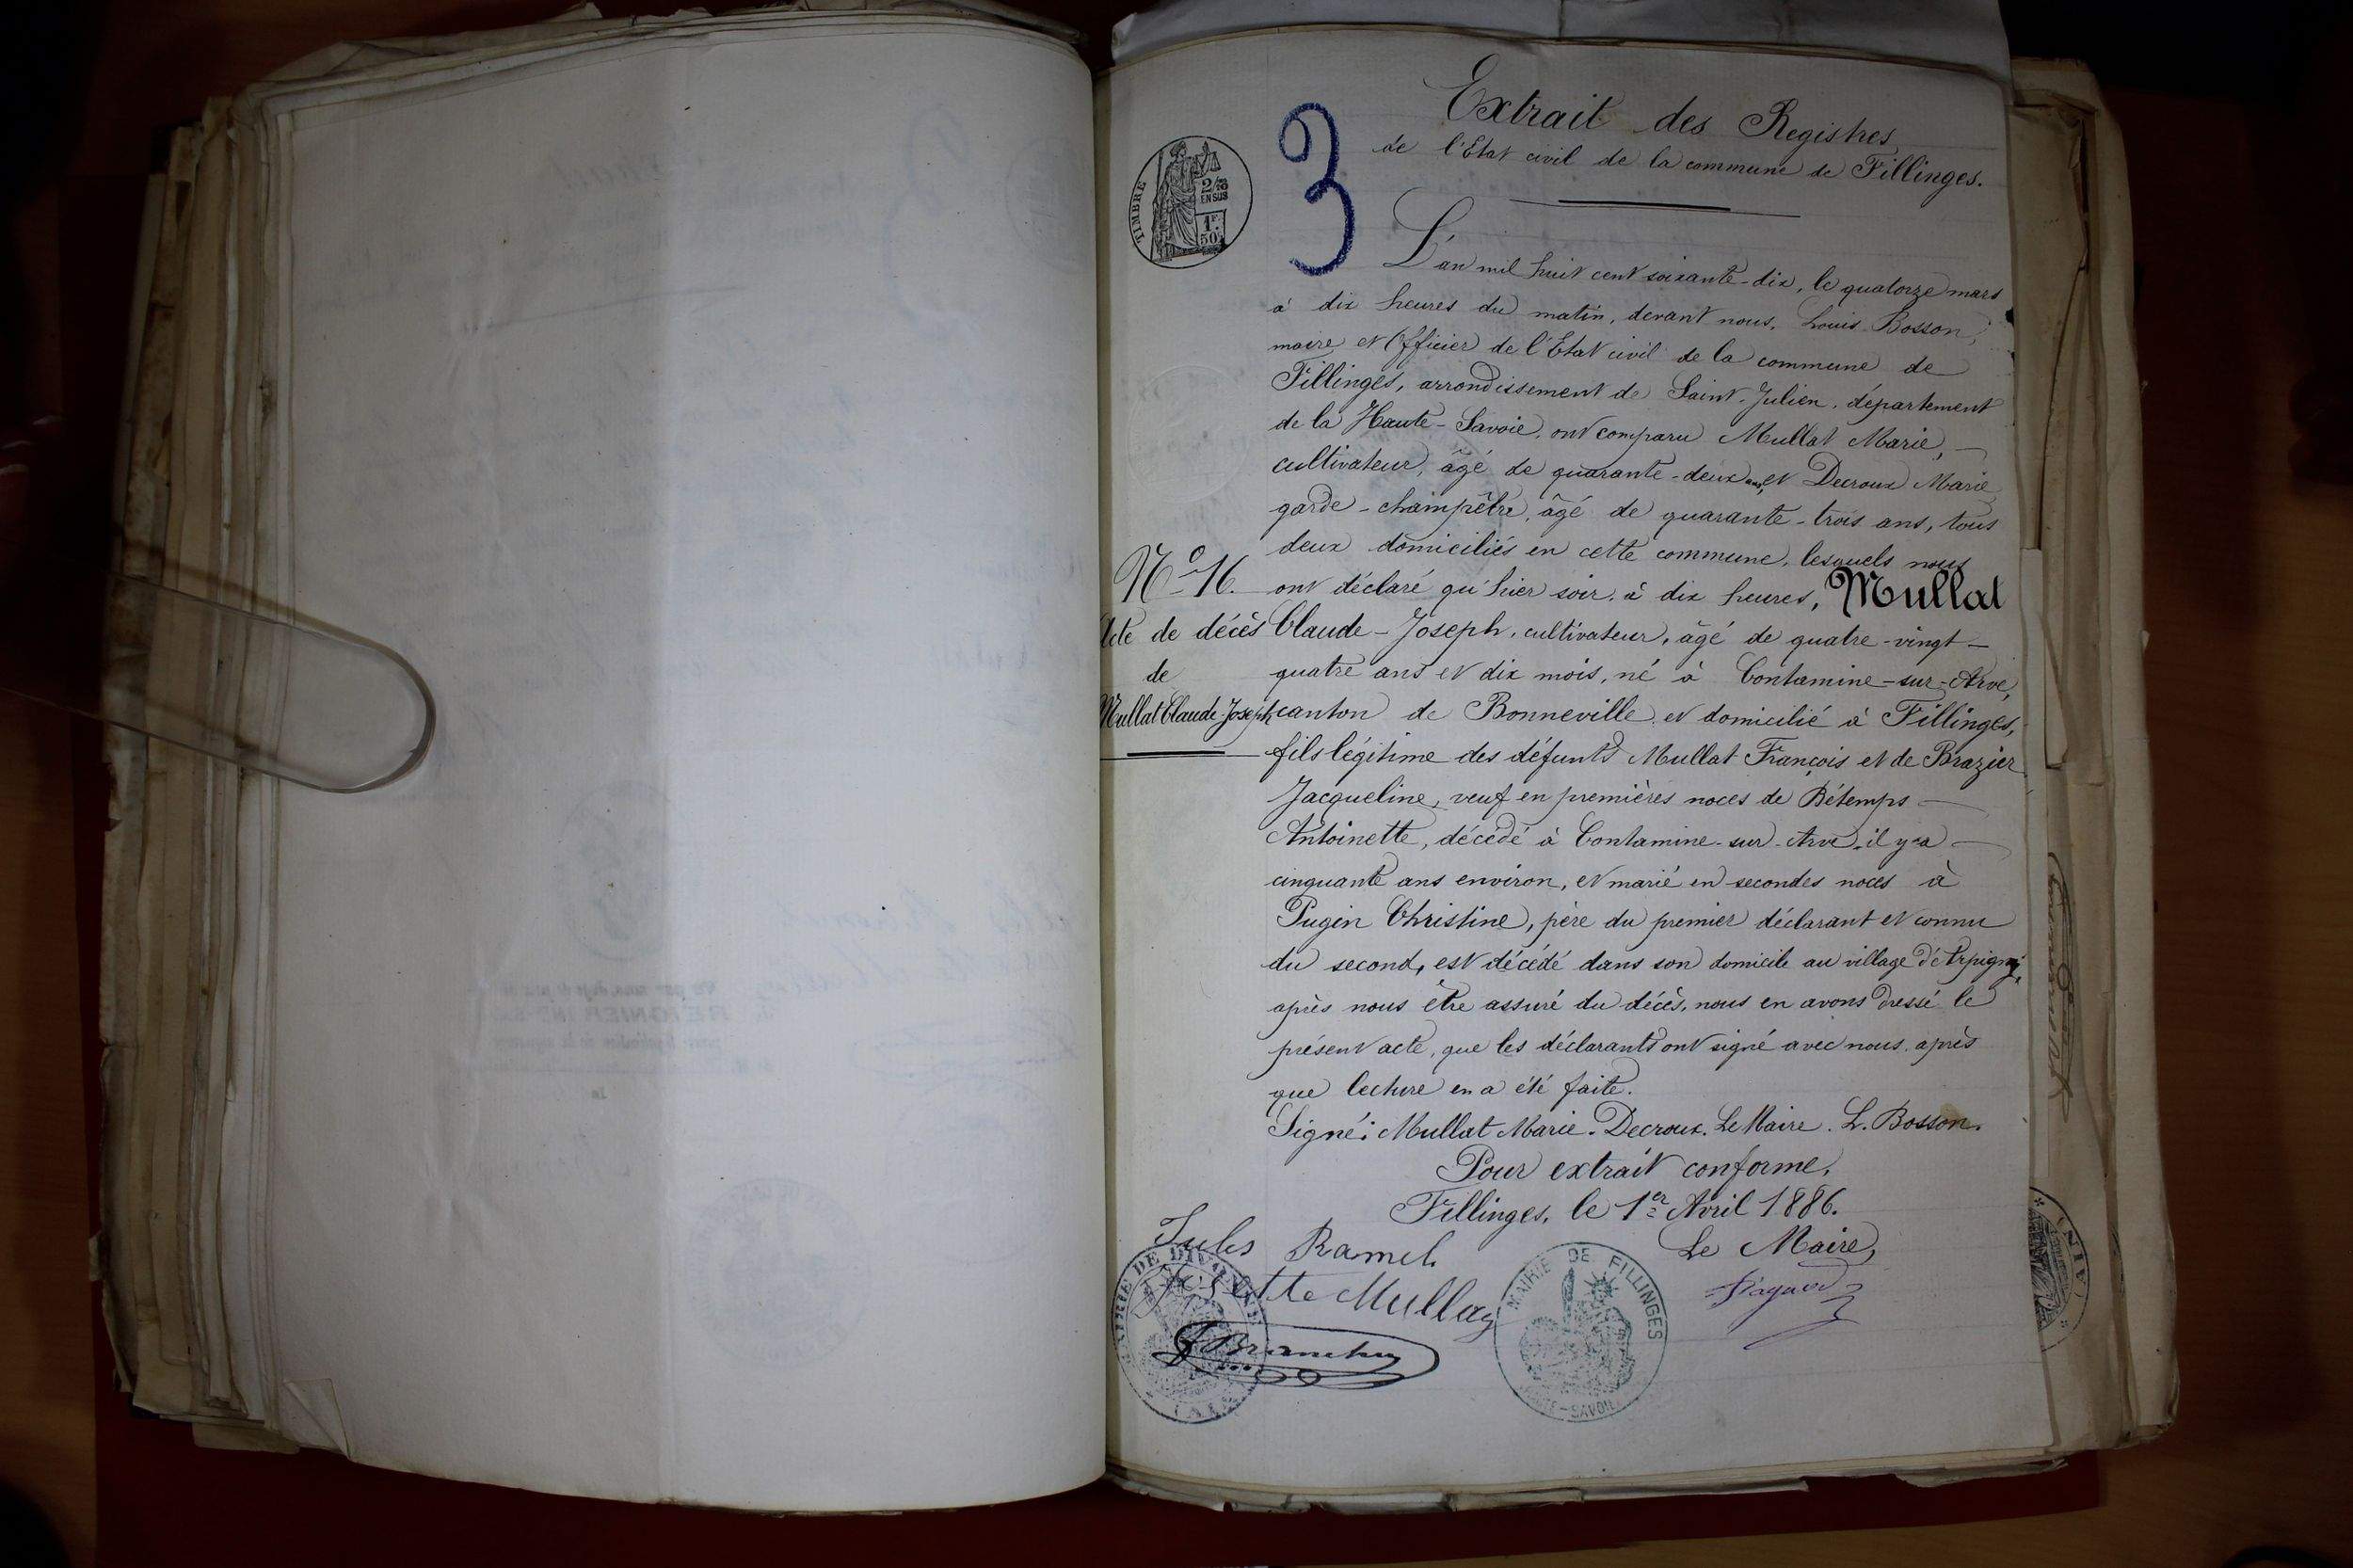 Extrait des Registres
de l'Etat civil de la commune de Fillinges.
3
TIMBRE
2/10
EN SUS
1F.
50c
L'an mil huit cent soixante-dix, le quatorze mars
à dix heures du matin, devant nous, Louis Bosson,
maire et Officier de l'Etat civil de la commune de
Fillinges, arrondissement de Saint-Julien, département
de la Haute-Savoie, ont comparu Mullat Marie,
cultivateur, âgé de quarante-deux ans, et Decroux Marie
garde-champêtre, âgé de quarante-trois ans, tous
deux domiciliés en cette commune, lesquels nous
ont déclaré qu'hier soir, à dix heures, Mullat
Claude-Joseph, cultivateur, âgé de quatre-vingt-
quatre ans et dix mois, né à Contamine-sur-Arve,
canton de Bonneville, et domicilié à Fillinges,
fils légitime des défunts Mullat François et de Brazier
Jacqueline, veuf en premières noces de Bétemps
Antoinette, décédé à Contamine-sur-Arve, il y a
cinquante ans environ, et marié en secondes noces à
Pugin Christine, père du premier déclarant et connu
du second, est décédé dans son domicile au village d'Arpigny,
après nous être assuré du décès, nous en avons dressé le
présent acte, que les déclarants ont signé avec nous, après
que lecture en a été faite.
Signé: Mullat Marie. Decroux. Le Maire. L. Bosson.
Pour extrait conforme,
Fillinges, le 1er Avril 1886.
Le Maire,
N° 16.
Acte de décès
de
Mullat Claude-Joseph
Jules Ramel
Mullaz
MAIRIE DE
(AIN)
MAIRIE DE FILLINGES
HAUTE-SAVOIE